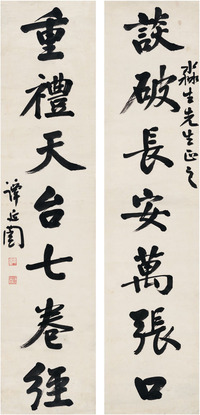 談破長安萬張口
淼生先生正之
重禮天台七卷經
譚延闓